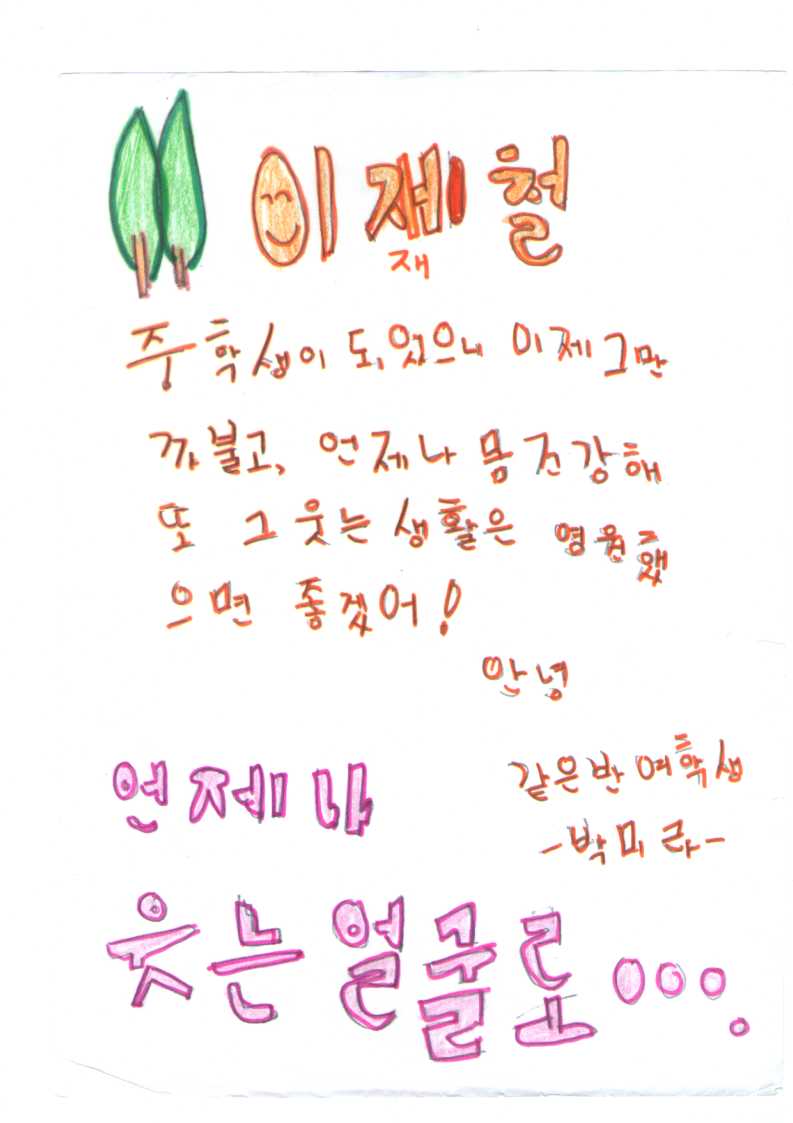 이제철
재
중학생이 되었으니 이제 그만
까불고, 언제나 몸 건강해
또 그 웃는 생활은 영원했
으면 좋겠어!
안녕
같은반 여학생
-박미라-
언제나
웃는 얼굴로....